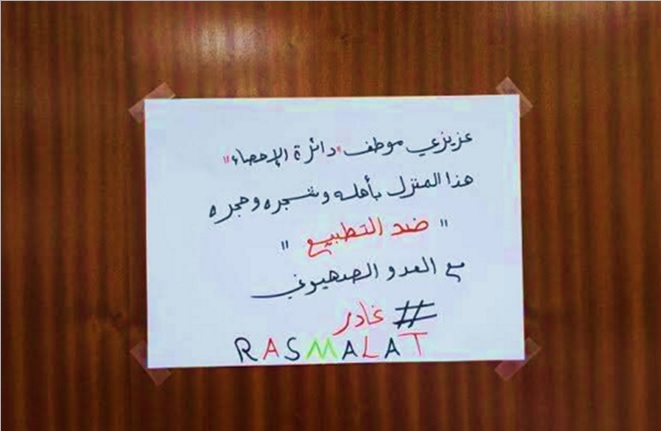 عزيزي موظف "دائرة الإحصاء"
هذا المنزل بأهله وشجره وحجره
" ضد التطبيع "
مع العدو الصهيوني
# غادر
RASMALAT